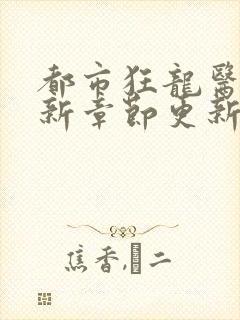 都市狂龍醫
新章節更新
焦香,�二